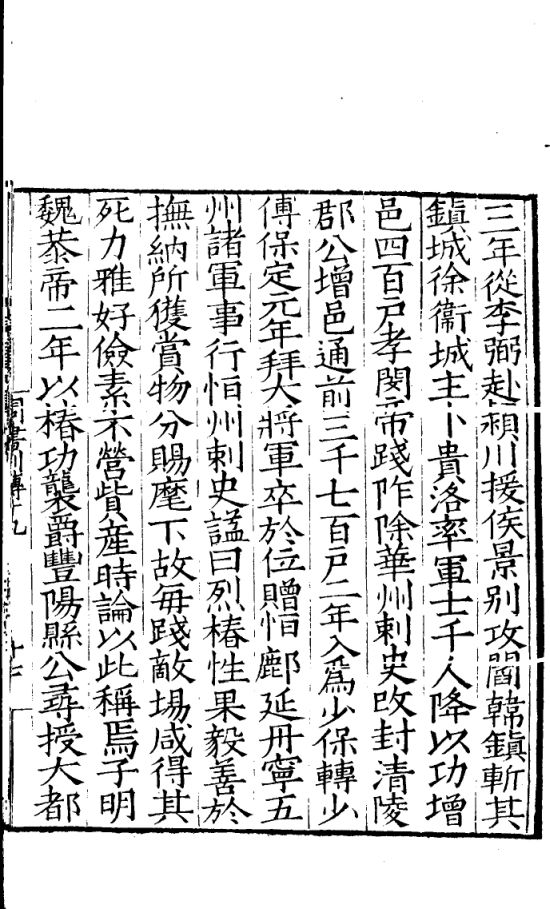 三年從李弼赴潁川援侯景别攻閻韓鎮斬其
鎮城徐衞城主卜貴洛率軍士千人降以功增
邑四百戸孝閔帝踐阼除華州刺史改封清陵
郡公增邑通前三千七百戸二年入爲少保轉少
傅保定元年拜大將軍卒於位贈恒鄜延丹寧五
州諸軍事行恒州刺史謚曰烈椿性果毅善於
撫納所獲賞物分賜麾下故毎踐敵場咸得其
死力雅好儉素不營貲産時論以此稱焉子明
魏恭帝二年以椿功襲爵豐陽縣公尋授大都
周書列傳十九